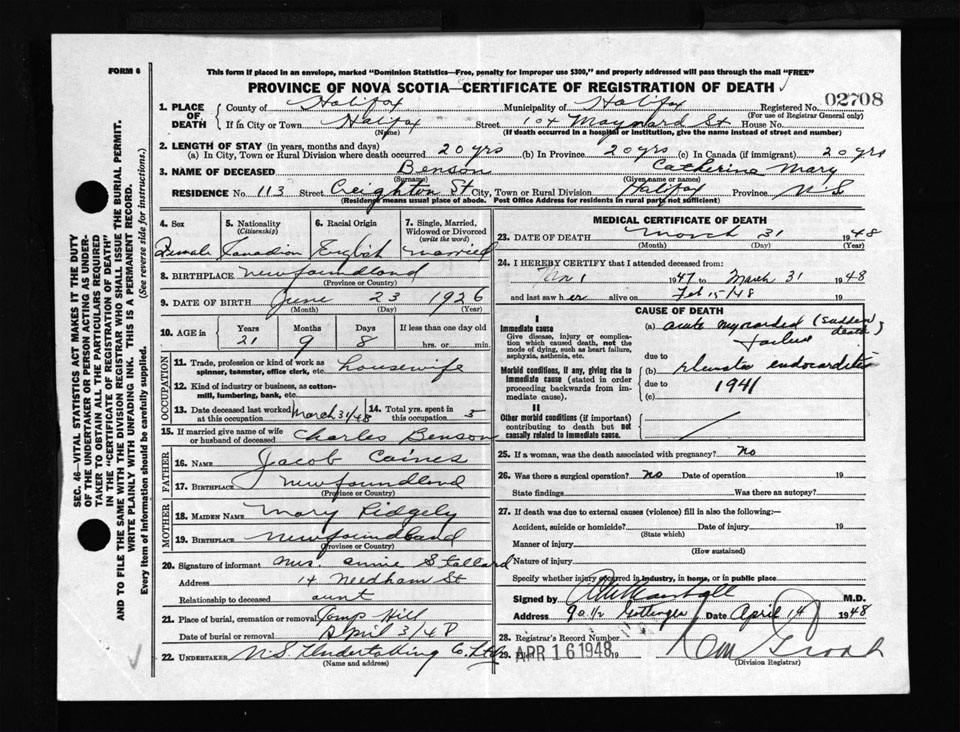 FORM 6
This form if placed in an envelope, marked "Dominion Statistics—Free, penalty for improper use $300," and properly addressed will pass through the mail "FREE"
PROVINCE OF NOVA SCOTIA—CERTIFICATE OF REGISTRATION OF DEATH
SEC. 46—VITAL STATISTICS ACT MAKES IT THE DUTY
OF THE UNDERTAKER OR PERSON ACTING AS UNDER-
TAKER TO OBTAIN ALL THE PARTICULARS REQUIRED
IN THE "CERTIFICATE OF REGISTRATION OF DEATH"
AND TO FILE THE SAME WITH THE DIVISION REGISTRAR WHO SHALL ISSUE THE BURIAL PERMIT.
WRITE PLAINLY WITH UNFADING INK. THIS IS A PERMANENT RECORD.
Every item of information should be carefully supplied. (See reverse side for instructions.)
1. PLACE OF DEATH County of Halifax Municipality of Halifax Registered No. 02708
(For use of Registrar General only)
If in City or Town Halifax Street 104 Maynard St House No.
(Name) (If death occurred in a hospital or institution, give the name instead of street and number)
2. LENGTH OF STAY (in years, months and days)
(a) In City, Town or Rural Division where death occurred 20 yrs (b) In Province 20 yrs (c) In Canada (if immigrant) 20 yrs
3. NAME OF DECEASED Benson Catherine Mary
(Surname) (Given name or names)
RESIDENCE No. 113 Street Creighton St City, Town or Rural Division Halifax Province N.S.
(Residence means usual place of abode. Post Office Address for residents in rural parts not sufficient)
4. Sex 5. Nationality (Citizenship) 6. Racial Origin 7. Single, Married, Widowed or Divorced (write the word)
Female Canadian English married
8. BIRTHPLACE Newfoundland
(Province or Country)
9. DATE OF BIRTH June 23 1926
(Month) (Day) (Year)
10. AGE in Years Months Days If less than one day old
21 9 8 hrs. or min.
OCCUPATION
11. Trade, profession or kind of work as spinner, teamster, office clerk, etc. housewife
12. Kind of industry or business, as cotton-mill, lumbering, bank, etc.
13. Date deceased last worked at this occupation March 31/48 14. Total yrs. spent in this occupation 5
15. If married give name of wife or husband of deceased Charles Benson
FATHER
16. NAME Jacob Caines
17. BIRTHPLACE Newfoundland
(Province or Country)
MOTHER
18. MAIDEN NAME Mary Ridgely
19. BIRTHPLACE Newfoundland
(Province or Country)
20. Signature of informant Mrs. Annie Stallard
Address 14 Needham St
Relationship to deceased aunt
21. Place of burial, cremation or removal Camp Hill
Date of burial or removal April 3/48
22. UNDERTAKER N.S. Undertaking Co. Ltd
(Name and address)
MEDICAL CERTIFICATE OF DEATH
23. DATE OF DEATH March 31 1948
(Month) (Day) (Year)
24. I HEREBY CERTIFY that I attended deceased from:
1 1947 to March 31 1948
and last saw her alive on Feb 15/48 19
CAUSE OF DEATH
I
Immediate cause
Give disease, injury or complication which caused death, not the mode of dying, such as heart failure, asphyxia, asthenia, etc.
(a) acute myocardial (sudden death) failure
due to
Morbid conditions, if any, giving rise to immediate cause (stated in order proceeding backwards from immediate cause).
(b) endocarditis
due to 1941
(c)
II
Other morbid conditions (if important) contributing to death but not causally related to immediate cause.
25. If a woman, was the death associated with pregnancy? No
26. Was there a surgical operation? No Date of operation 19
State findings Was there an autopsy?
27. If death was due to external causes (violence) fill in also the following:—
Accident, suicide or homicide? Date of injury 19
(State which)
Manner of injury
(How sustained)
Nature of injury
Specify whether injury occurred in industry, in home, or in public place
Signed by M.D.
Address Gottingen Date April 14 1948
28. Registrar's Record Number
29. APR 16 1948 19
(Division Registrar)